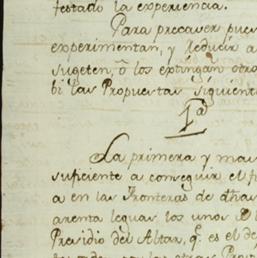 testado la experiencia.
Para precaver pues
experimentan, y reducir a
sugeten, ô los extingan otro
bi las Propuestas siguiente
1ª
La primera y mas
suficiente a conseguir el f
a en las Fronteras de dhas
arenta leguas los unos de l
Presidio del Altar, q.e es el de